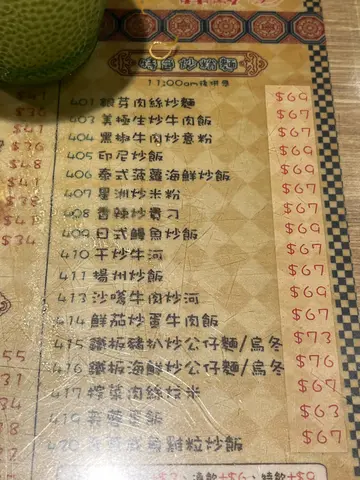 特色炒粉麵
11:00am後供應
401 銀芽肉絲炒麵 $69
403 美極生炒牛肉飯 $67
404 黑椒牛肉炒意粉 $67
405 印尼炒飯 $67
406 泰式菠蘿海鮮炒飯 $69
407 星洲炒米粉 $67
408 香辣炒貴刁 $67
409 日式鰻魚炒飯 $69
410 干炒牛河 $67
411 揚州炒飯 $67
413 沙嗲牛肉炒河 $69
414 鮮茄炒蛋牛肉飯 $67
415 鐵板豬扒炒公仔麵/烏冬 $73
416 鐵板海鮮炒公仔麵/烏冬 $76
417 榨菜肉絲炆米 $67
419 芙蓉蛋飯 $63
420 鹹魚雞粒炒飯 $67